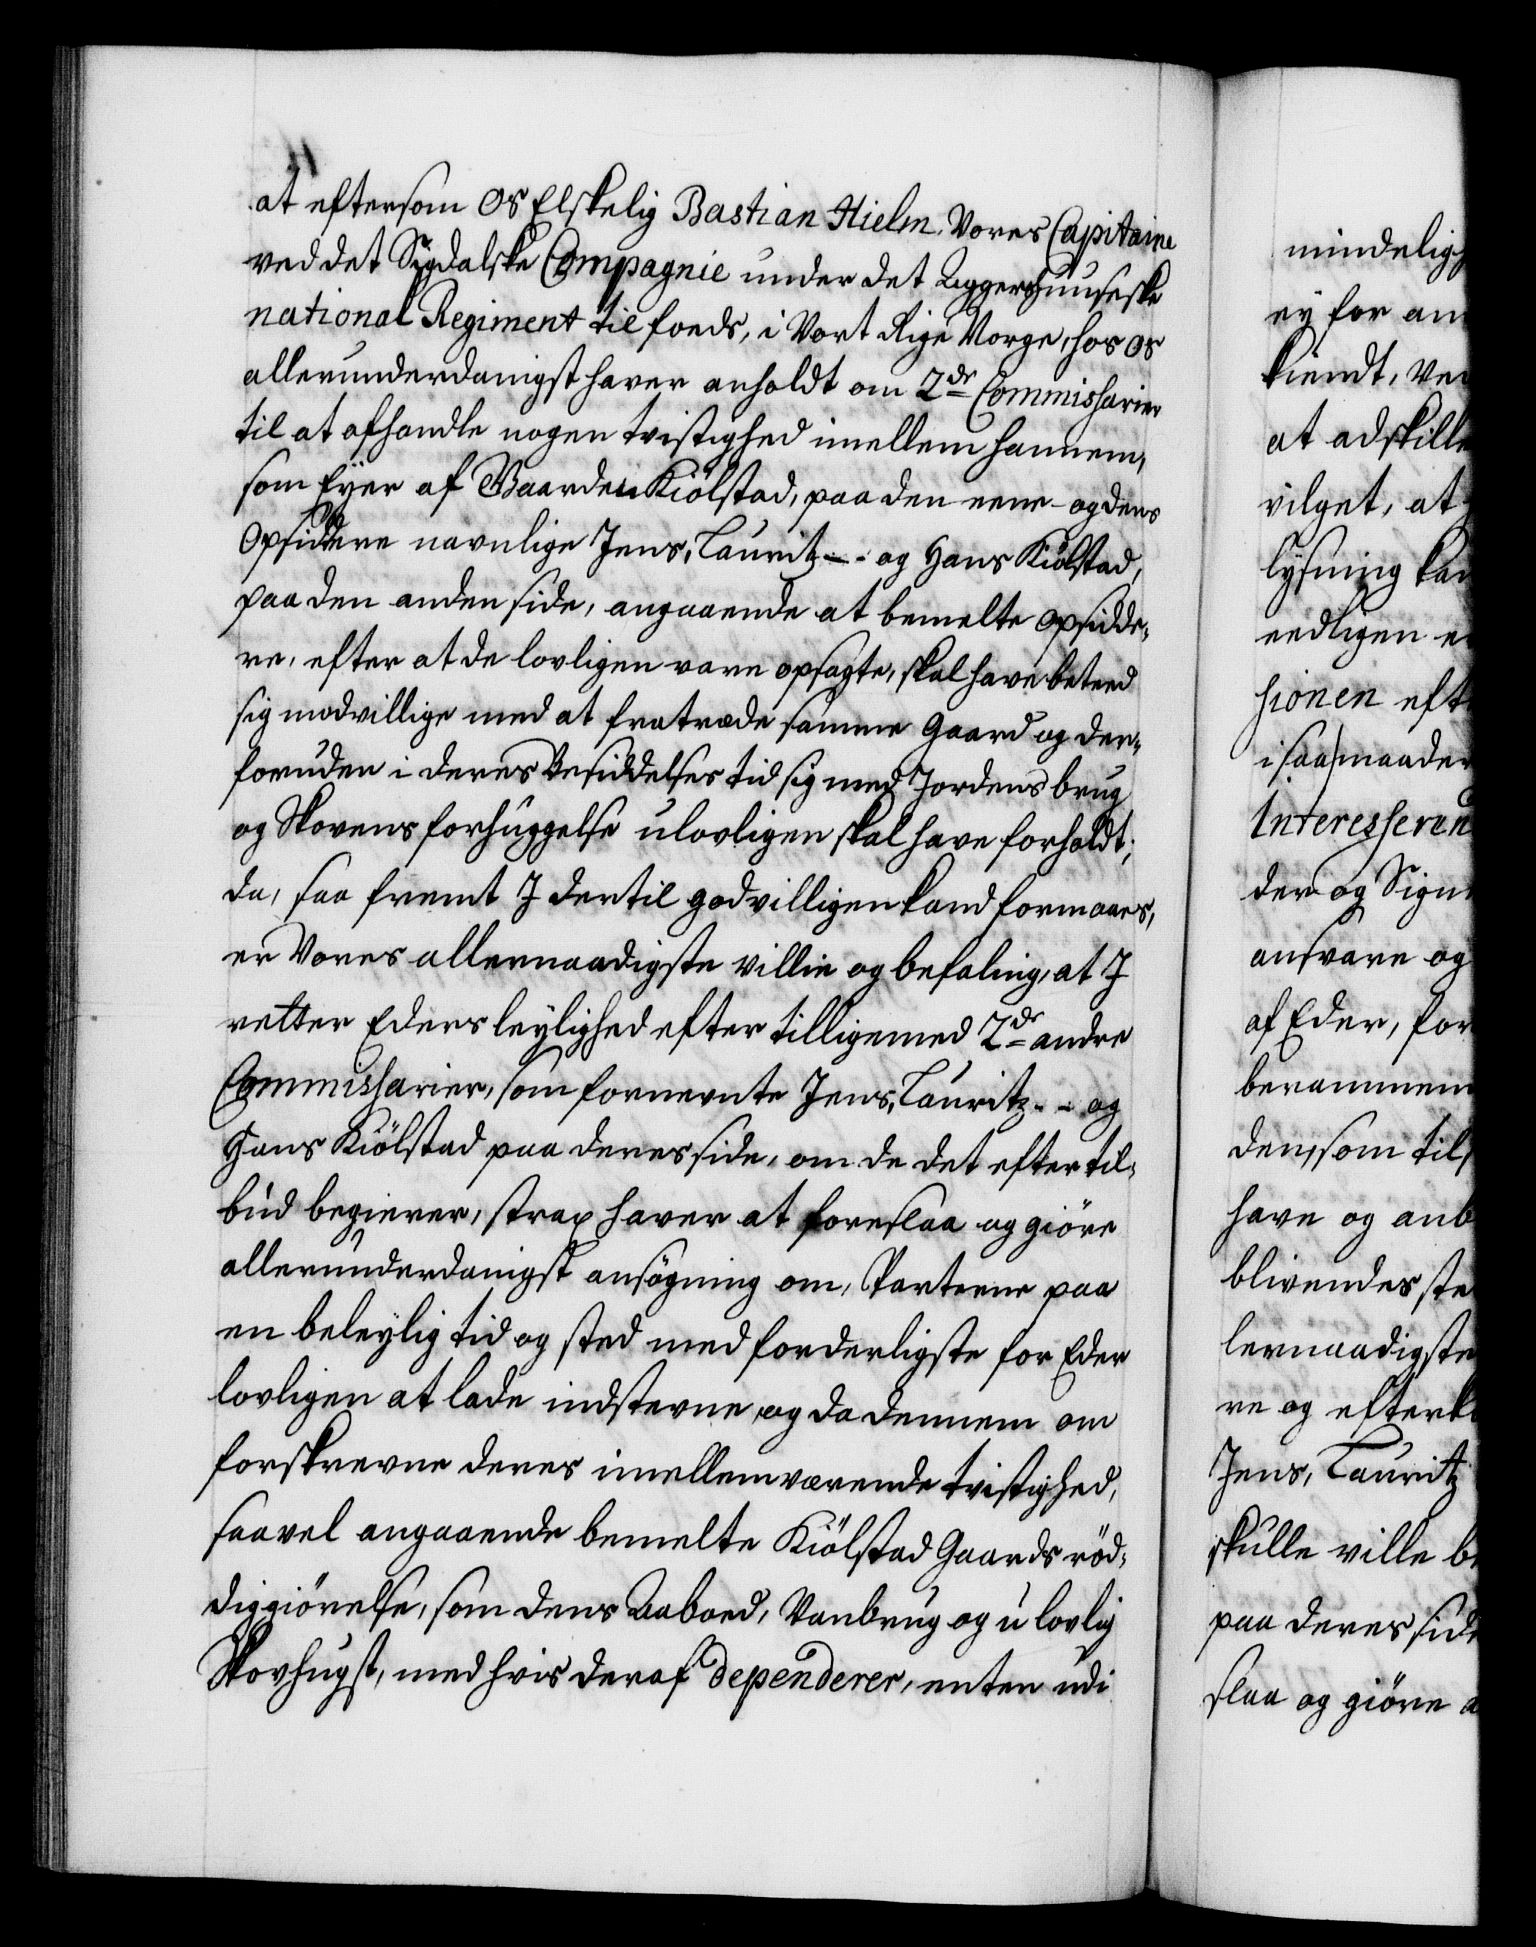 at eftersom Os Elskelig Bastian Hielm, Vores Capitaine
ved det Sigdalske Compagnie under det Aggershuuseske
national Regiment til foeds, i Vort Rige Norge, hos os
allerunderdanigst haver anholdt om 2de Commissarier
til at afhandle nogen tvistighed imellem hannem,
som Eyer af Gaarden Kiölstad, paa den eene- og dens
Opsiddere navnlige Jens, Lauritz - - og Hans Kiölstad,
paa den anden side, angaaende at bemelte opsidde-
re, efter at de lovligen vare opsagte, skal have beteed
sig modvillige med at fratræde samme Gaard og der-
foruden i deres Besiddelses tid sig med Jordens brug
og Skovens forhuggelse ulovligen skal have forholdt;
da, saa fremt I dertil godvilligen kand formaaes,
er Vores allernaadigste villie og befaling, at I
retter Eders leylighed efter tilligemed 2de andre
Commissarier, som fornevnte Jens, Lauritz - - og
Hans Kiölstad paa deres side, om de det efter til-
bud begierer, strax haver at foreslaa og giöre
allerunderdanigst ansögning om, Parterne paa
en beleylig tid og sted med forderligste for Eder
lovligen at lade indstevne, og da dennem om
forskrevne deres imellemværende tvistighed,
saavel angaaende bemelte Kiölstad Gaards röd-
diggiörelse, som dens Aaboed, Vanbrug og ulovlig
Skovhugst, med hvis deraf dependerer, enten udi
mindelig
ey for an
kiendt, Ve
at adskille
vilget, at
lysning kan
eedligen e
sionen eft
i saa maader
Interesseren
der og Sign
ansvare og
af Eder, for
berammem
den, som til
have og anb
blivendes, ste
lernaadigste
re og efterk
Jens, Lauritz
skulle ville b
paa deres side
slaa og giöre a